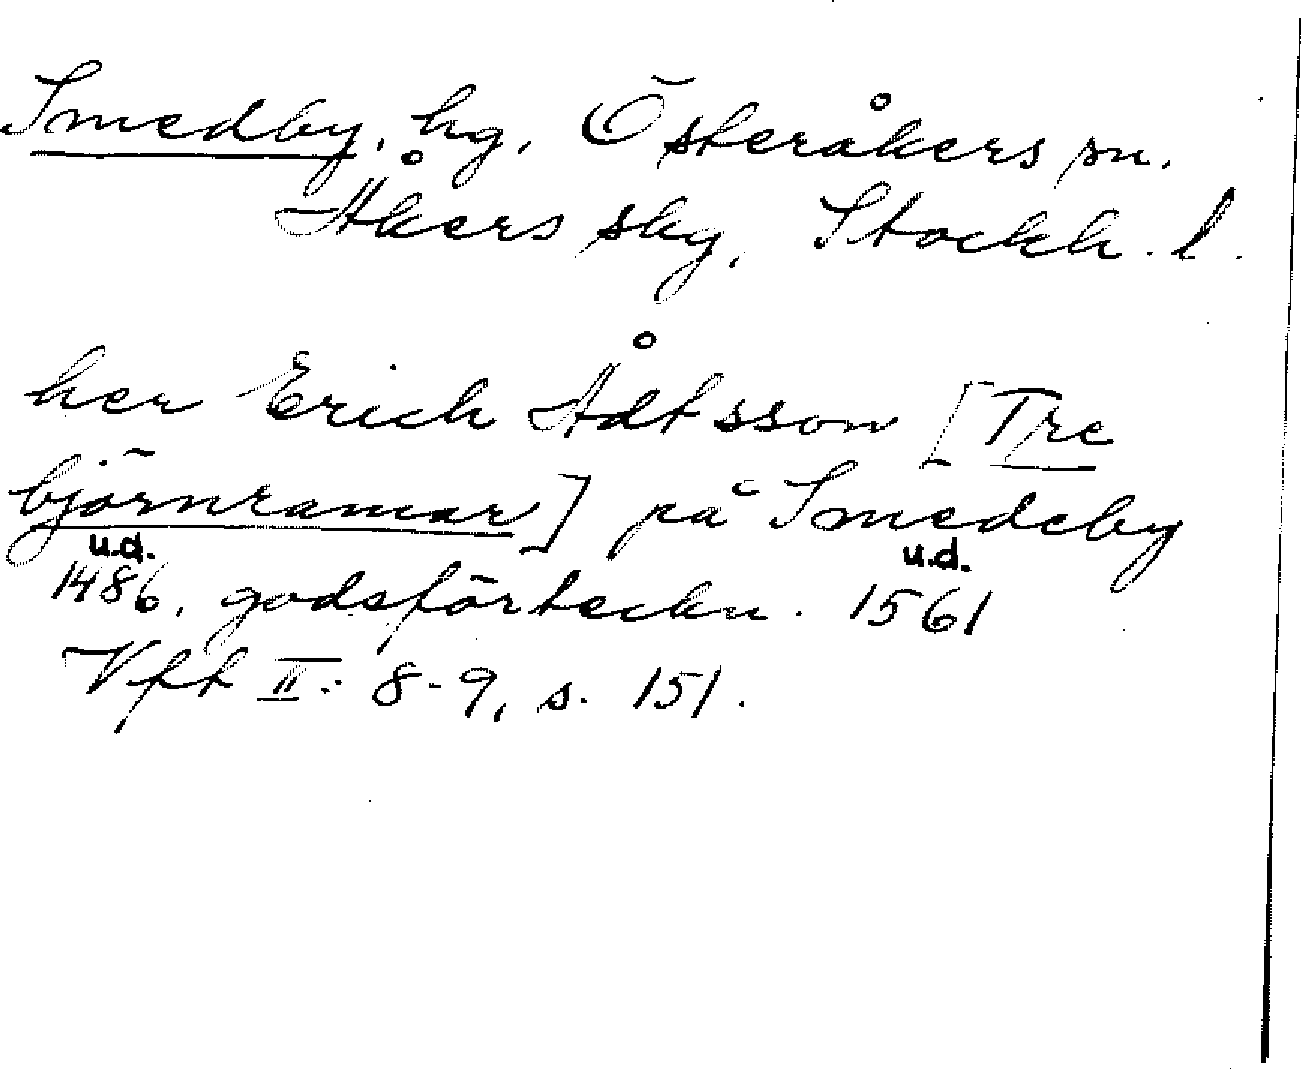 Smedby, hg, Österåkers sn.
Åkers skg, Stockh. l.
her Erich Ådtsson [Tre
björnramar] på Smedeby
u.d. u.d.
1486, godsförteckn. 1561
Vfft II: 8-9, s. 151.